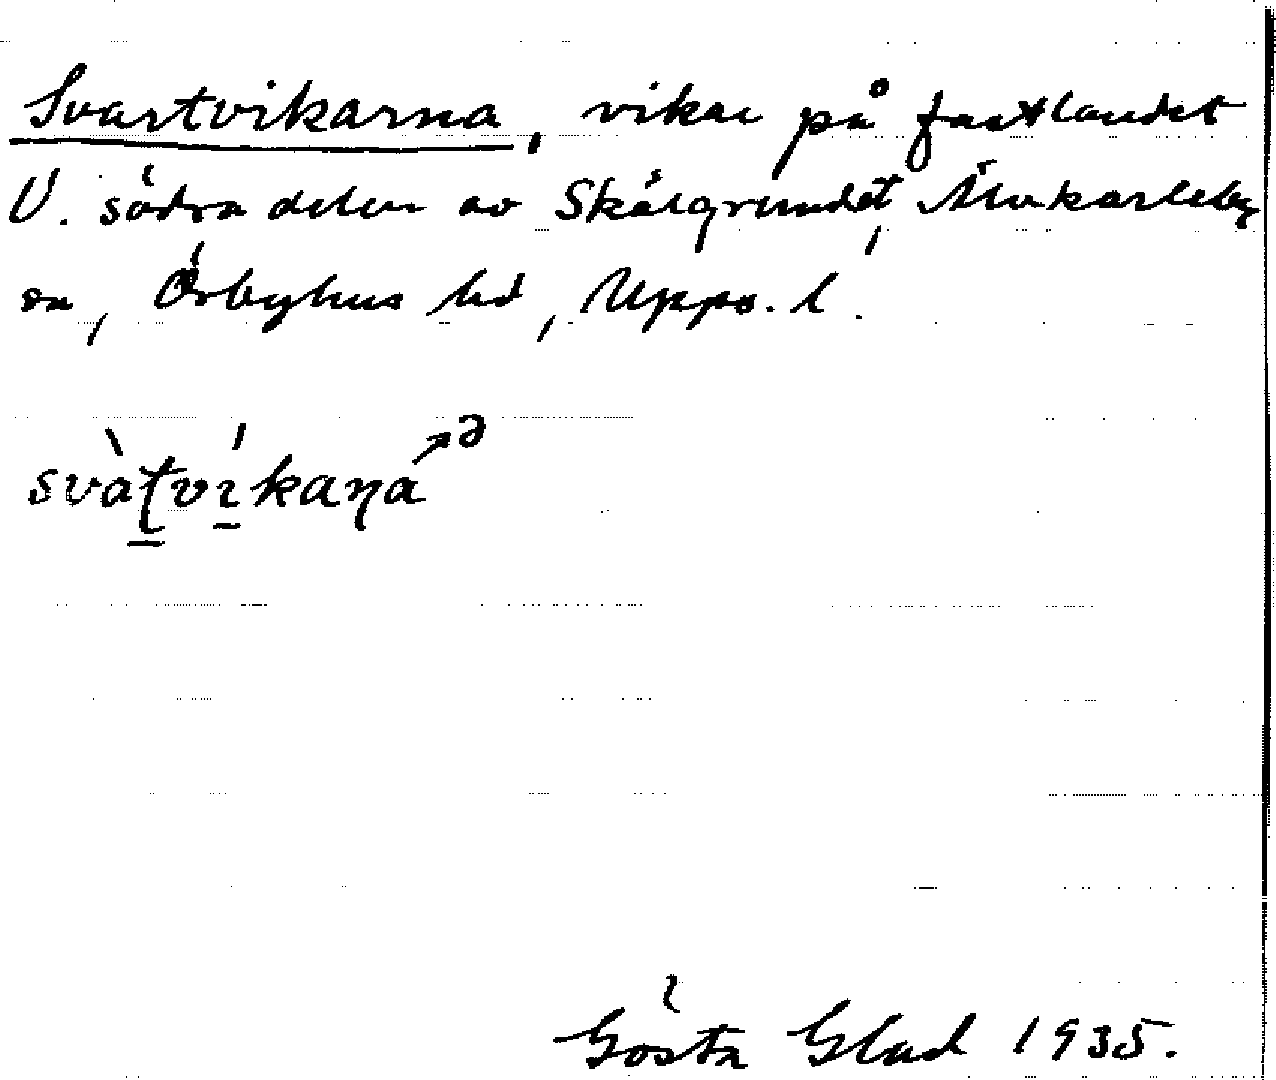 Svartvikarna, vikar på fastlandet
V. södra delen av Skålgrundet, Älvkarleby
sn, Örbyhus hd, Upps. l.
svàt̠ví̠kaṇa ↗ə
Gösta Glad 1935.